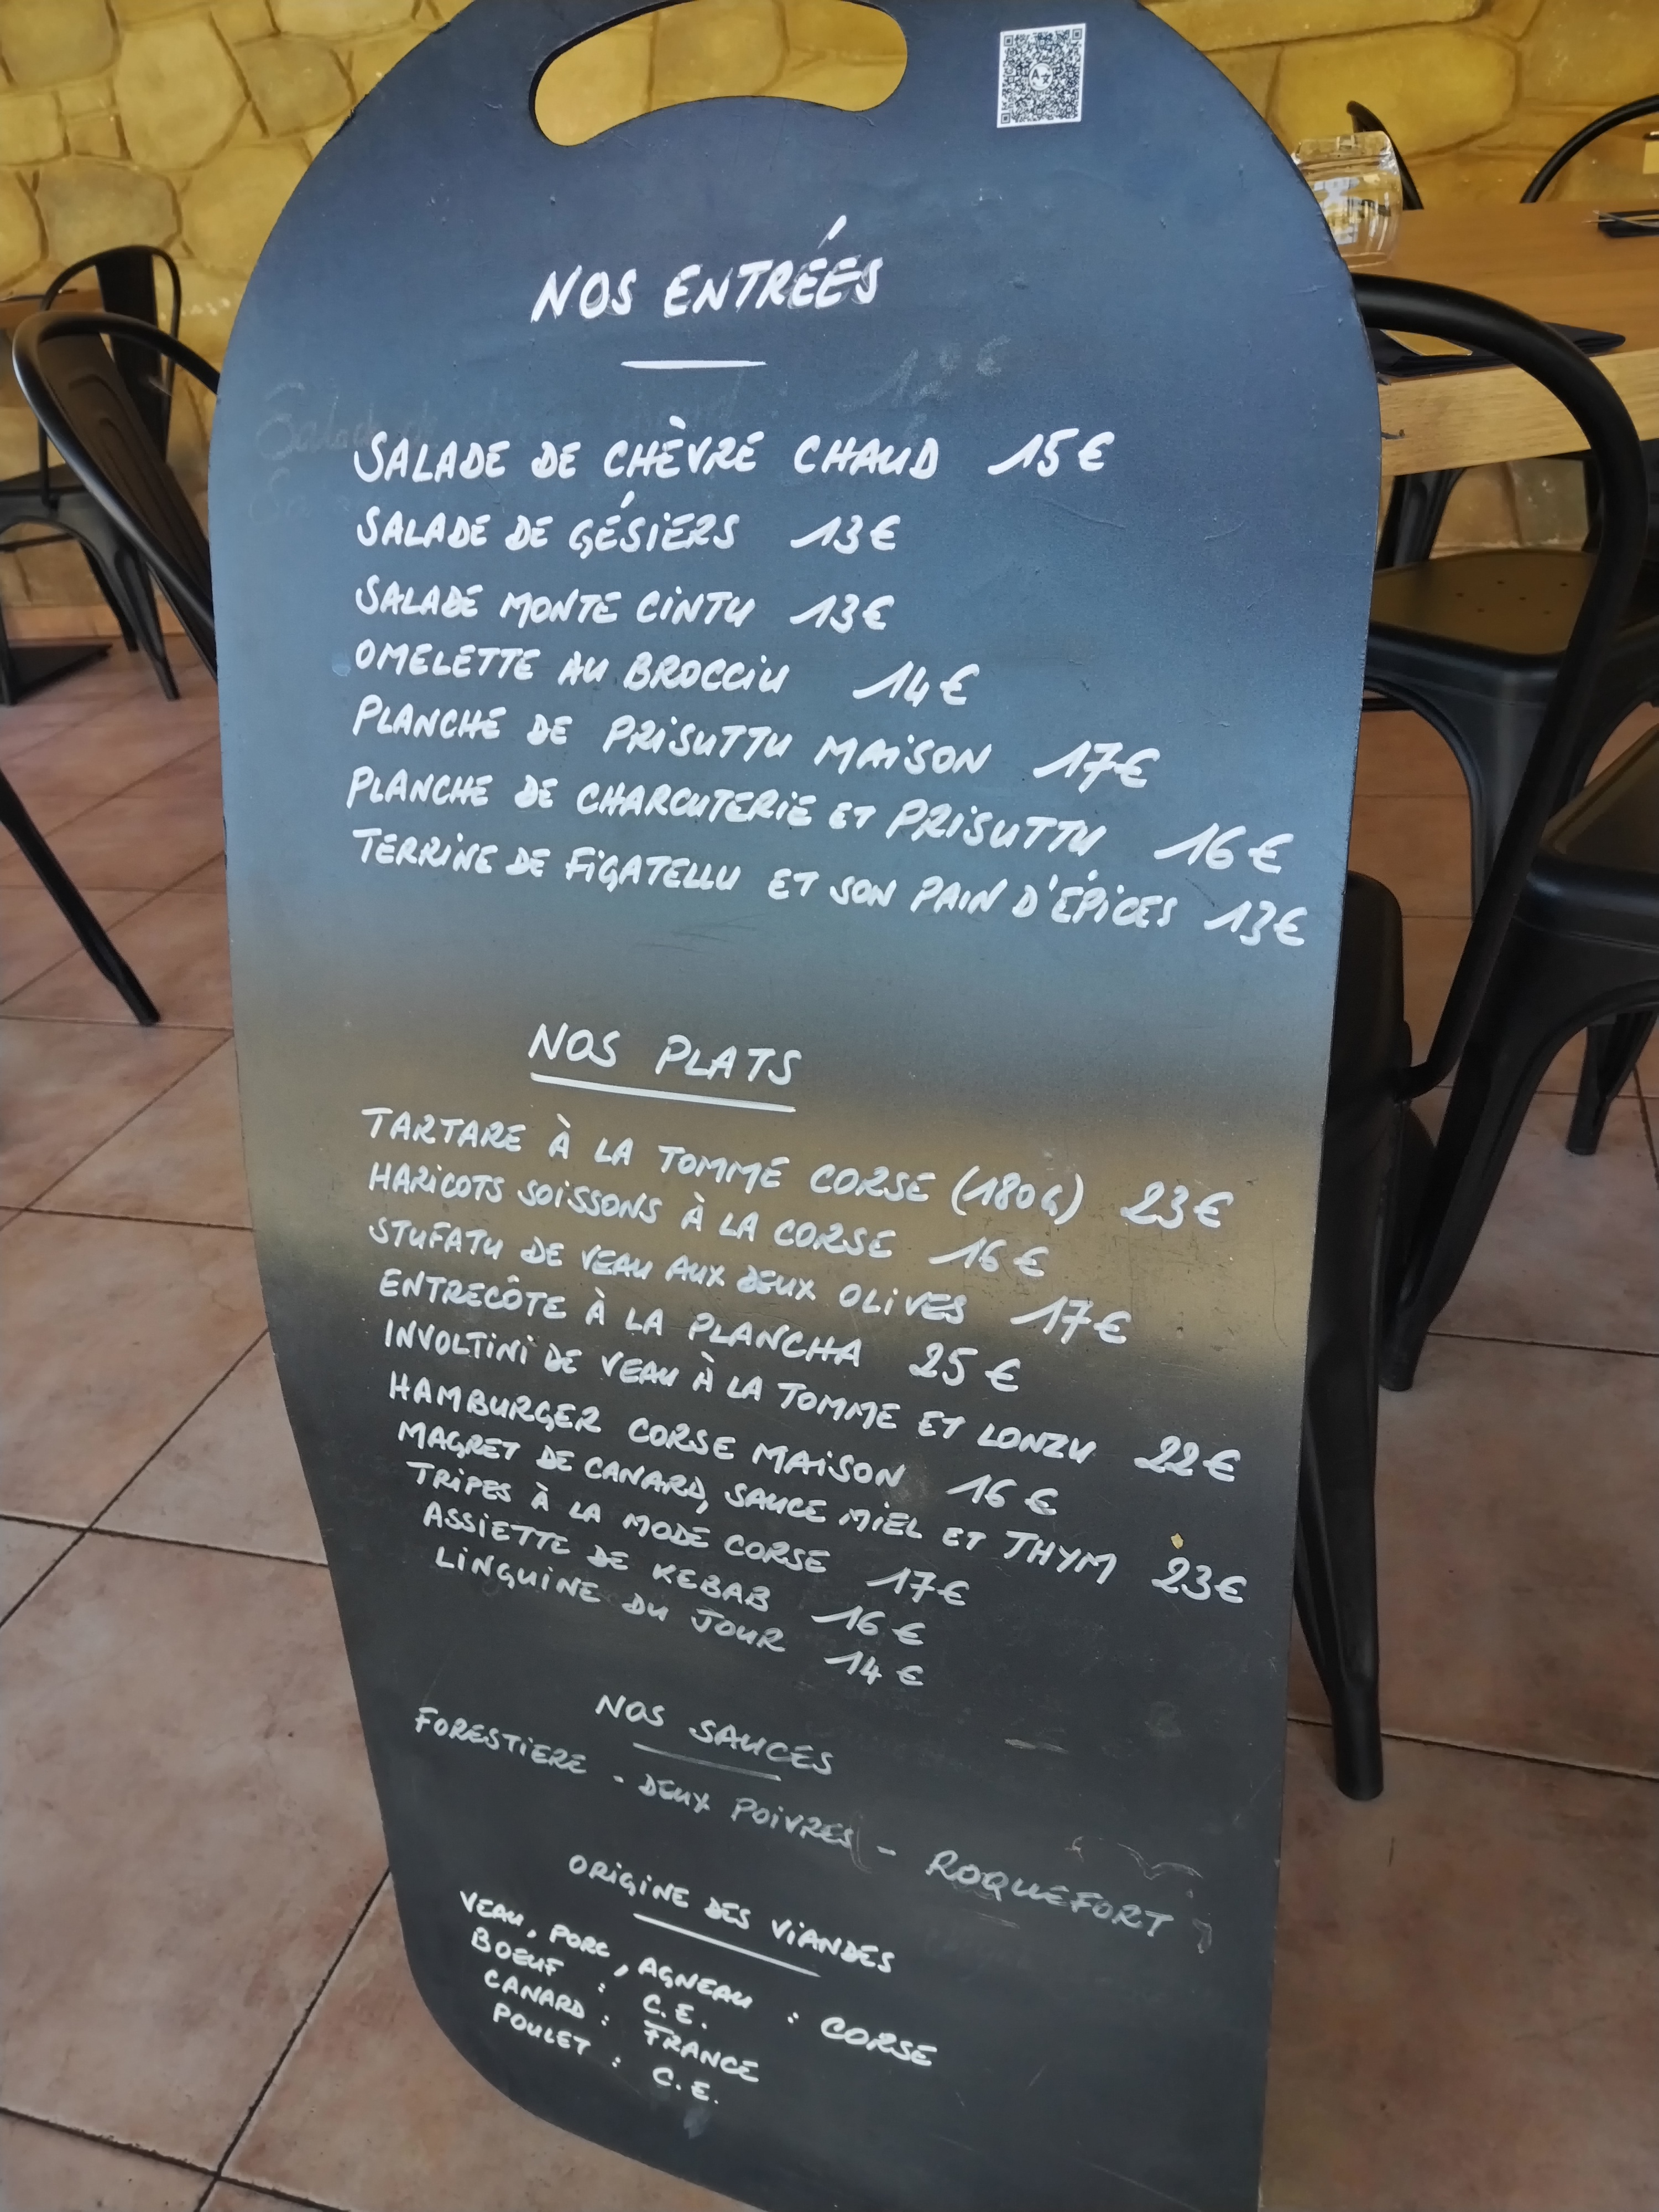 NOS ENTRÉES
SALADE DE CHÈVRE CHAUD 15€
SALADE DE GÉSIERS 13€
SALADE MONTE CINTU 13€
OMELETTE AU BROCCIU 14€
PLANCHE DE PRISUTTU MAISON 17€
PLANCHE DE CHARCUTERIE ET PRISUTTU 16€
TERRINE DE FIGATELLU ET SON PAIN D'ÉPICES 13€
NOS PLATS
TARTARE À LA TOMME CORSE (180G) 23€
HARICOTS SOISSONS À LA CORSE 16€
STUFATU DE VEAU AUX DEUX OLIVES 17€
ENTRECÔTE À LA PLANCHA 25€
INVOLTINI DE VEAU À LA TOMME ET LONZU 22€
HAMBURGER CORSE MAISON 16€
MAGRET DE CANARD, SAUCE MIEL ET THYM 23€
TRIPES À LA MODE CORSE 17€
ASSIETTE DE KEBAB 16€
LINGUINE DU JOUR 14€
NOS SAUCES
FORESTIERE - DEUX POIVRES - ROQUEFORT
ORIGINE DES VIANDES
VEAU, PORC, AGNEAU : CORSE
BOEUF : C.E.
CANARD : FRANCE
POULET : C.E.